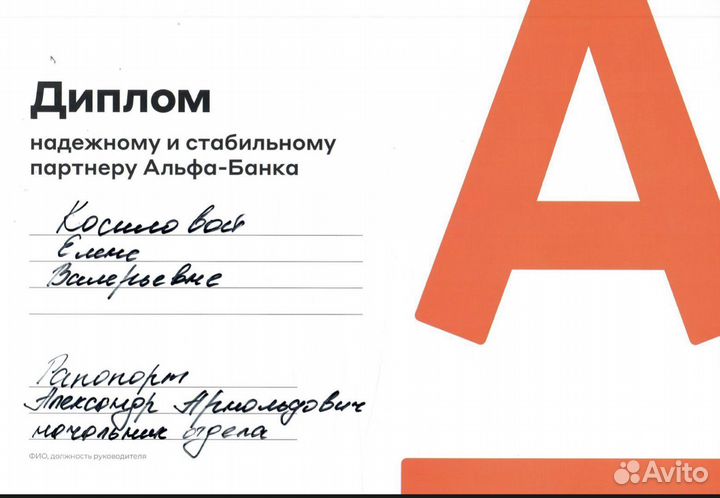 Диплом
надежному и стабильному
партнеру Альфа-Банка
Косиловой
Елене
Валерьевне
Рапопорт
Александр Арнольдович
начальник отдела
ФИО, должность руководителя
Avito